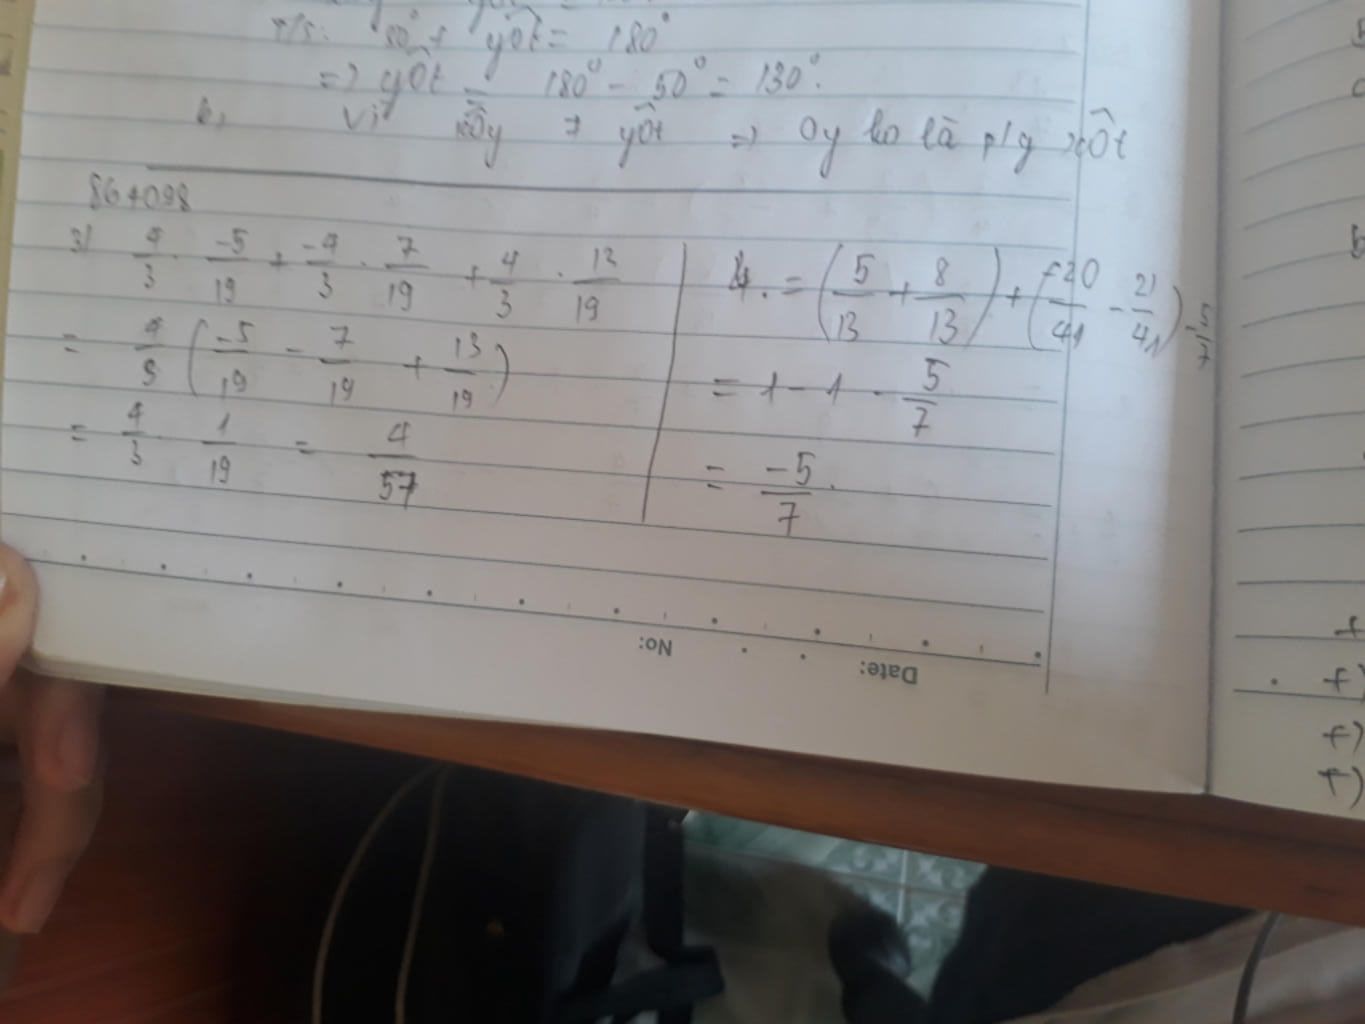 50° + yÔt = 180°
=> yÔt = 180° - 50° = 130°.
b, Vì xÔy ≠ yÔt => Oy ko là p/g xÔt
864098
3) 4/3 . -5/19 + -4/3 . 7/19 + 4/3 . 13/19
= 4/3 (-5/19 - 7/19 + 13/19)
= 4/3 . 1/19 = 4/57
4. = (5/13 + 8/13) + (-20/41 - 21/41) - 5/7
= 1 - 1 - 5/7
= -5/7.
No:
Date: